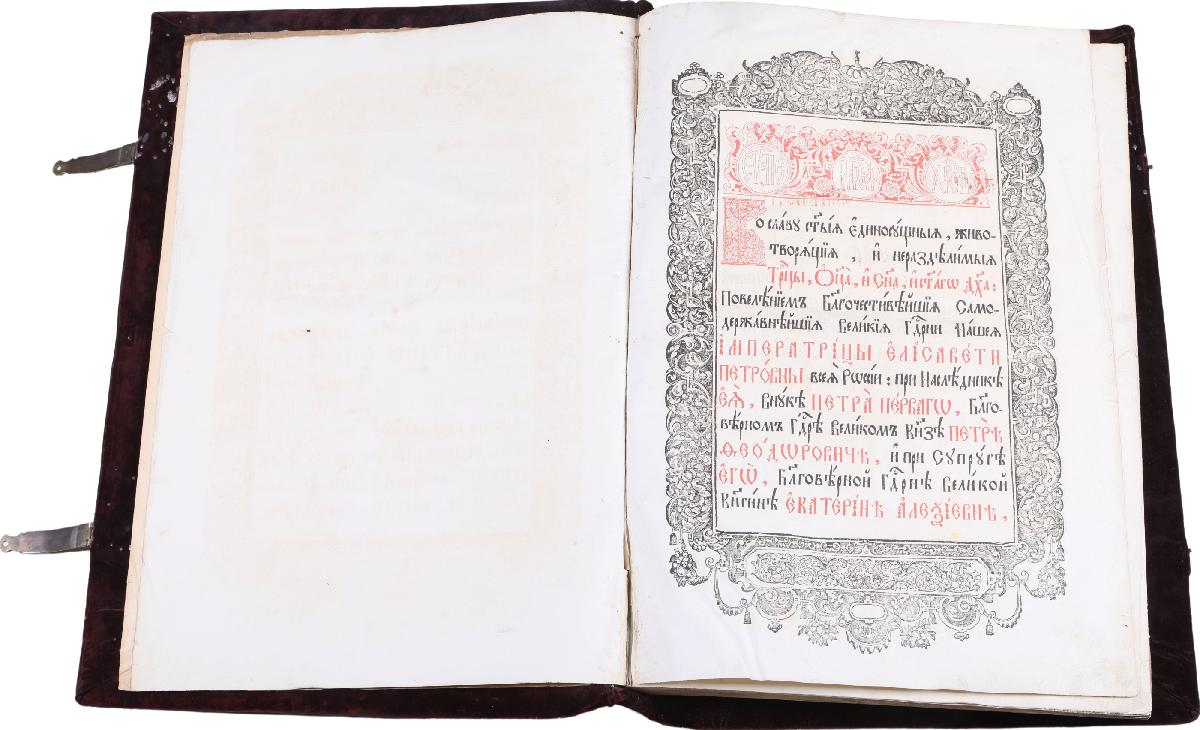 Во славу ст҃ы́ѧ є҆диносꙋ́щныѧ, живо-
творѧ́щїѧ, и҆ нераздѣли́мыѧ
Трⷪ҇цы, Ѻ҆ц҃а̀, и҆ Сн҃а, и҆ ст҃а́гѡ Дх҃а:
Повелѣ́нїемъ Бл҃гочести́вѣйшїѧ Само-
держа́внѣйшїѧ Вели́кїѧ Гдⷭ҇рни На́шеѧ
І҆МПЕРАТРИ́ЦЫ Є҆ЛІСАВЕ́ТИ
ПЕТРО́ВНЫ всеѧ̀ Рѡссі́и: при Наслѣ́дникѣ
Є҆Ѧ̀, Внꙋ́кѣ ПЕТРА̀ ПЕ́РВАГѠ, Бл҃го-
вѣ́рномъ Гдⷭ҇рѣ Вели́комъ Кн҃зѣ ПЕТРѢ̀
Ѳ҆ЕО́ДѠРОВИЧѢ, и҆ при Сꙋпрꙋ́гѣ
Є҆ГѠ̀, Бл҃говѣ́рной Гдⷭ҇рнѣ Вели́кой
Кн҃ги́нѣ Є҆КАТЕРІ́НѢ А҆ЛЕѮІ́ЕВНѢ,